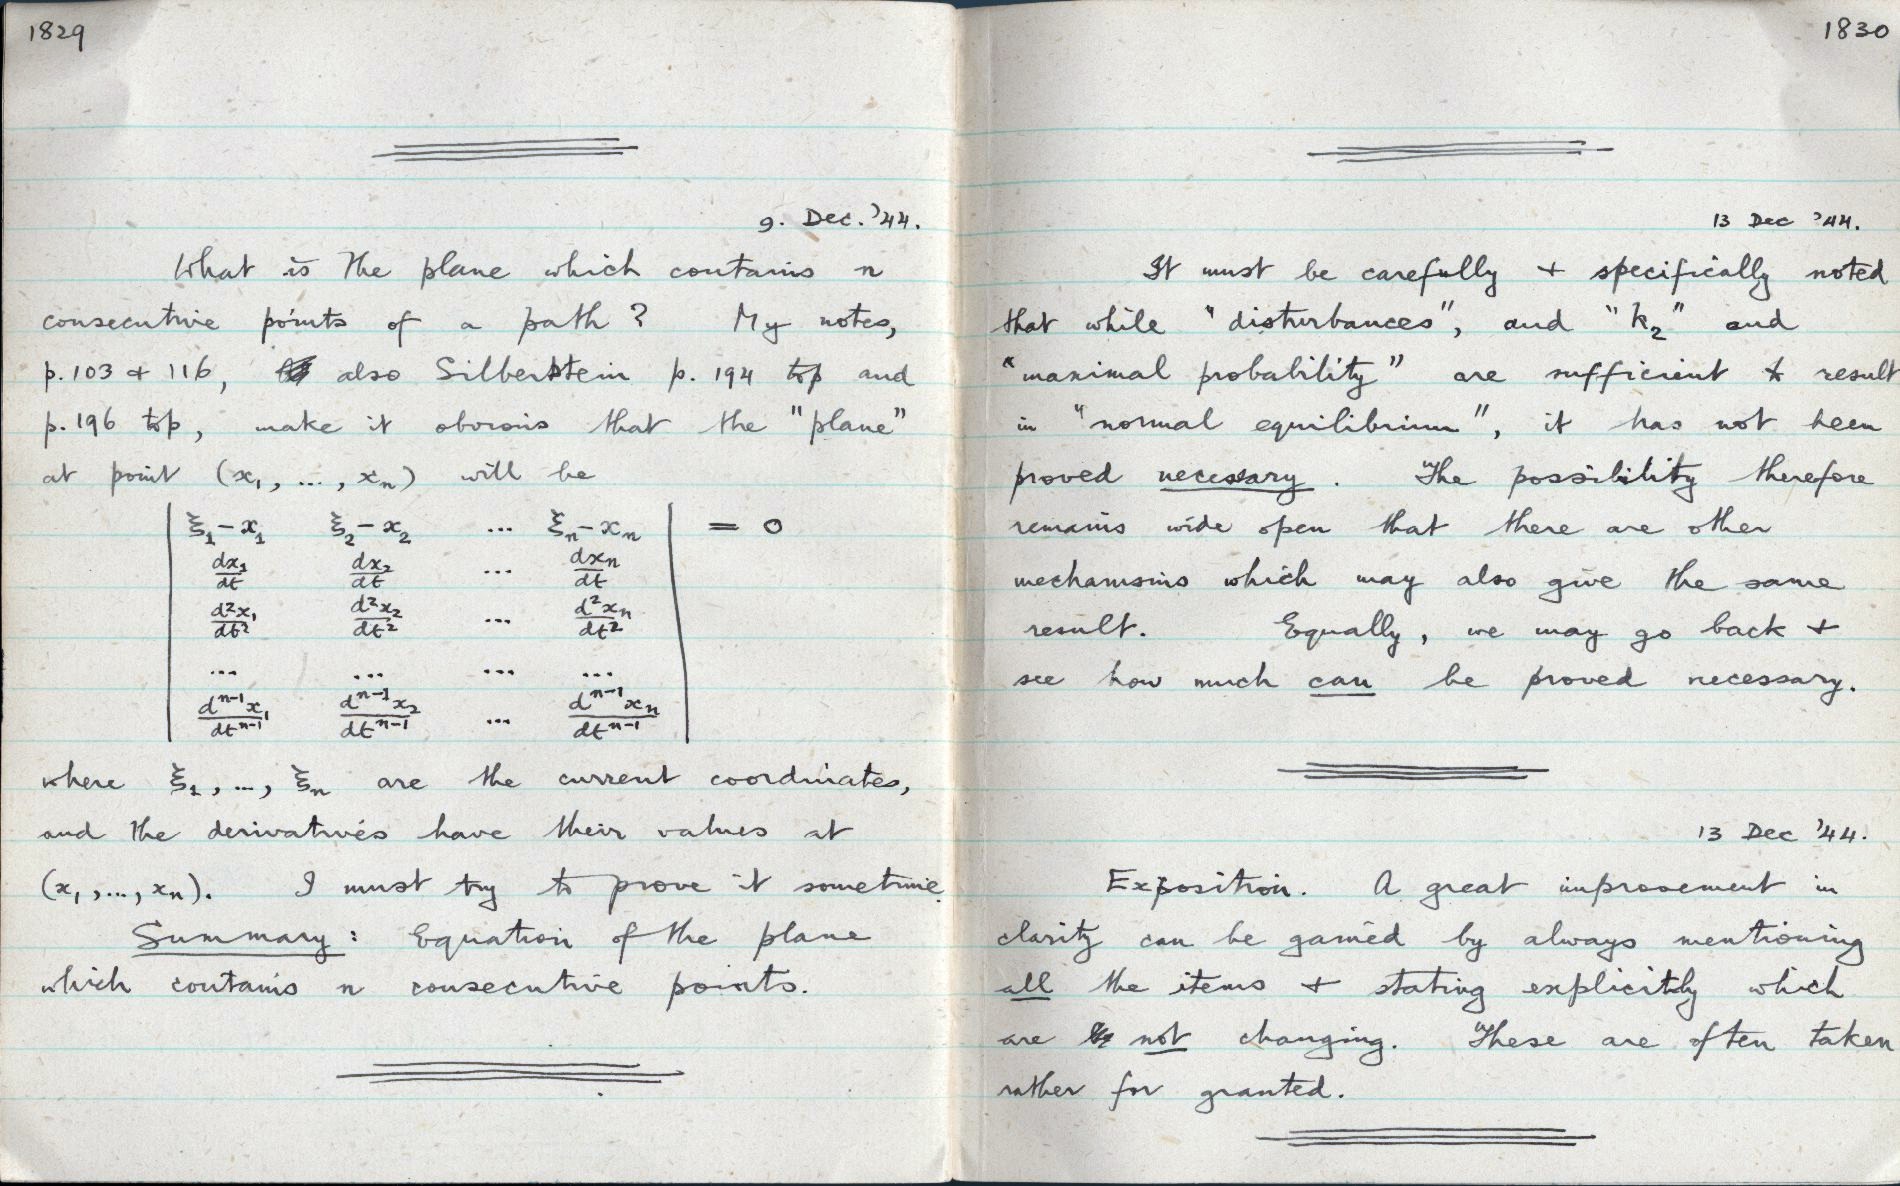 1829
9. Dec. '44.
What is the plane which contains n
consecutive points of a path? My notes,
p.103 + 116, also Silberstein p. 194 top and
p.196 top, make it obvious that the "plane"
at point (x₁, ..., xₙ) will be
| ξ₁-x₁ ξ₂-x₂ ... ξₙ-xₙ | = 0
| dx₁/dt dx₂/dt ... dxₙ/dt |
| d²x₁/dt² d²x₂/dt² ... d²xₙ/dt² |
| ... ... ... ... |
| dⁿ⁻¹x₁/dtⁿ⁻¹ dⁿ⁻¹x₂/dtⁿ⁻¹ ... dⁿ⁻¹xₙ/dtⁿ⁻¹ |
where ξ₁, ..., ξₙ are the current coordinates,
and the derivatives have their values at
(x₁, ..., xₙ). I must try to prove it sometime.
Summary: Equation of the plane
which contains n consecutive points.
1830
13 Dec '44.
It must be carefully + specifically noted
that while "disturbances", and "k₂" and
"maximal probability" are sufficient to result
in "normal equilibrium", it has not been
proved necessary. The possibility therefore
remains wide open that there are other
mechanisms which may also give the same
result. Equally, we may go back +
see how much can be proved necessary.
13 Dec '44.
Exposition. A great improvement in
clarity can be gained by always mentioning
all the items + stating explicitly which
are not changing. These are often taken
rather for granted.